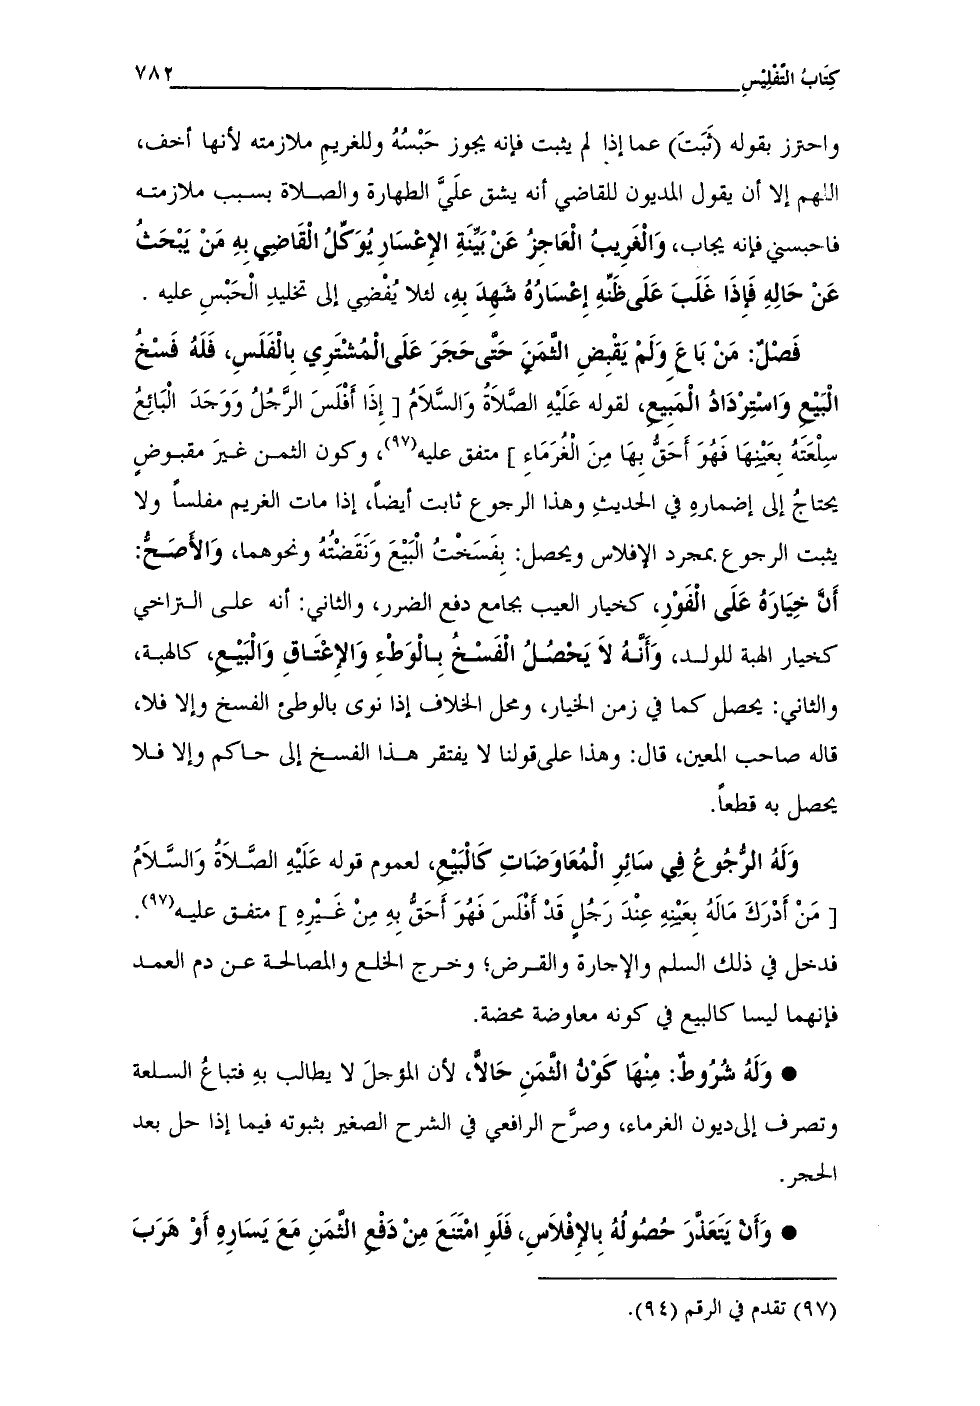 كِتَابُ التَّفْلِيْسِ ٧٨٢
واحترز بقوله (ثَبَتَ) عما إذا لم يثبت فإنه يجوز حَبْسُهُ وللغريم ملازمته لأنها أخف،
اللهم إلا أن يقول المديون للقاضي أنه يشق علَيَّ الطهارة والصلاة بسبب ملازمته
فاحبسني فإنه يجاب، وَالْغَرِيبُ الْعَاجِزُ عَنْ بَيِّنَةِ الإعْسَارِ يُوَكِّلُ الْقَاضِي بِهِ مَنْ يَبْحَثُ
عَنْ حَالِهِ فَإِذَا غَلَبَ عَلَى ظَنِّهِ إِعْسَارُهُ شَهِدَ بِهِ، لئلا يُفْضِي إلى تخليدِ الْحَبْسِ عليه .
فَصْلٌ: مَنْ بَاعَ وَلَمْ يَقْبِضِ الثَّمَنَ حَتَّى حَجَرَ عَلَى الْمُشْتَرِي بِالْفَلَسِ، فَلَهُ فَسْخُ
الْبَيْعِ وَاسْتِرْدَادُ الْمَبِيعِ، لقوله عَلَيْهِ الصَّلاَةُ وَالسَّلاَمُ [ إِذَا أَفْلَسَ الرَّجُلُ وَوَجَدَ الْبَائِعُ
سِلْعَتَهُ بِعَيْنِهَا فَهُوَ أَحَقُّ بِهَا مِنَ الْغُرَمَاءِ ] متفق عليه(٩٧)، وكون الثمن غيرَ مقبوضٍ
يحتاجُ إلى إضمارهِ في الحديثِ وهذا الرجوع ثابت أيضاً، إذا مات الغريم مفلساً ولا
يثبت الرجوع بمجرد الإفلاس ويحصل: بِفَسَخْتُ الْبَيْعَ وَنَقَضْتُهُ ونحوهما، وَالأَصَحُّ:
أَنَّ خِيَارَهُ عَلَى الْفَوْرِ، كخيار العيب بجامع دفع الضرر، والثاني: أنه على التراخي
كخيار الهبة للولد، وَأَنَّهُ لاَ يَحْصُلُ الْفَسْخُ بِالْوَطْءِ وَالإِعْتَاقِ وَالْبَيْعِ، كالهبة،
والثاني: يحصل كما في زمن الخيار، ومحل الخلاف إذا نوى بالوطئ الفسخ وإلا فلا،
قاله صاحب المعين، قال: وهذا على قولنا لا يفتقر هذا الفسخ إلى حاكم وإلا فلا
يحصل به قطعاً.
وَلَهُ الرُّجُوعُ فِي سَائِرِ الْمُعَاوَضَاتِ كَالْبَيْعِ، لعموم قوله عَلَيْهِ الصَّلاَةُ وَالسَّلاَمُ
[ مَنْ أَدْرَكَ مَالَهُ بِعَيْنِهِ عِنْدَ رَجُلٍ قَدْ أَفْلَسَ فَهُوَ أَحَقُّ بِهِ مِنْ غَيْرِهِ ] متفق عليه(٩٧).
فدخل في ذلك السلم والإجارة والقرض؛ وخرج الخلع والمصالحة عن دم العمد
فإنهما ليسا كالبيع في كونه معاوضة محضة.
● وَلَهُ شُرُوطٌ: مِنْهَا كَوْنُ الثَّمَنِ حَالاًّ، لأن المؤجلَ لا يطالب بهِ فتباعُ السلعة
وتصرف إلى ديون الغرماء، وصرَّح الرافعي في الشرح الصغير بثبوته فيما إذا حل بعد
الحجر.
● وَأَنْ يَتَعَذَّرَ حُصُولُهُ بِالإِفْلاَسِ، فَلَوِ امْتَنَعَ مِنْ دَفْعِ الثَّمَنِ مَعَ يَسَارِهِ أَوْ هَرَبَ
(٩٧) تقدم في الرقم (٩٤).